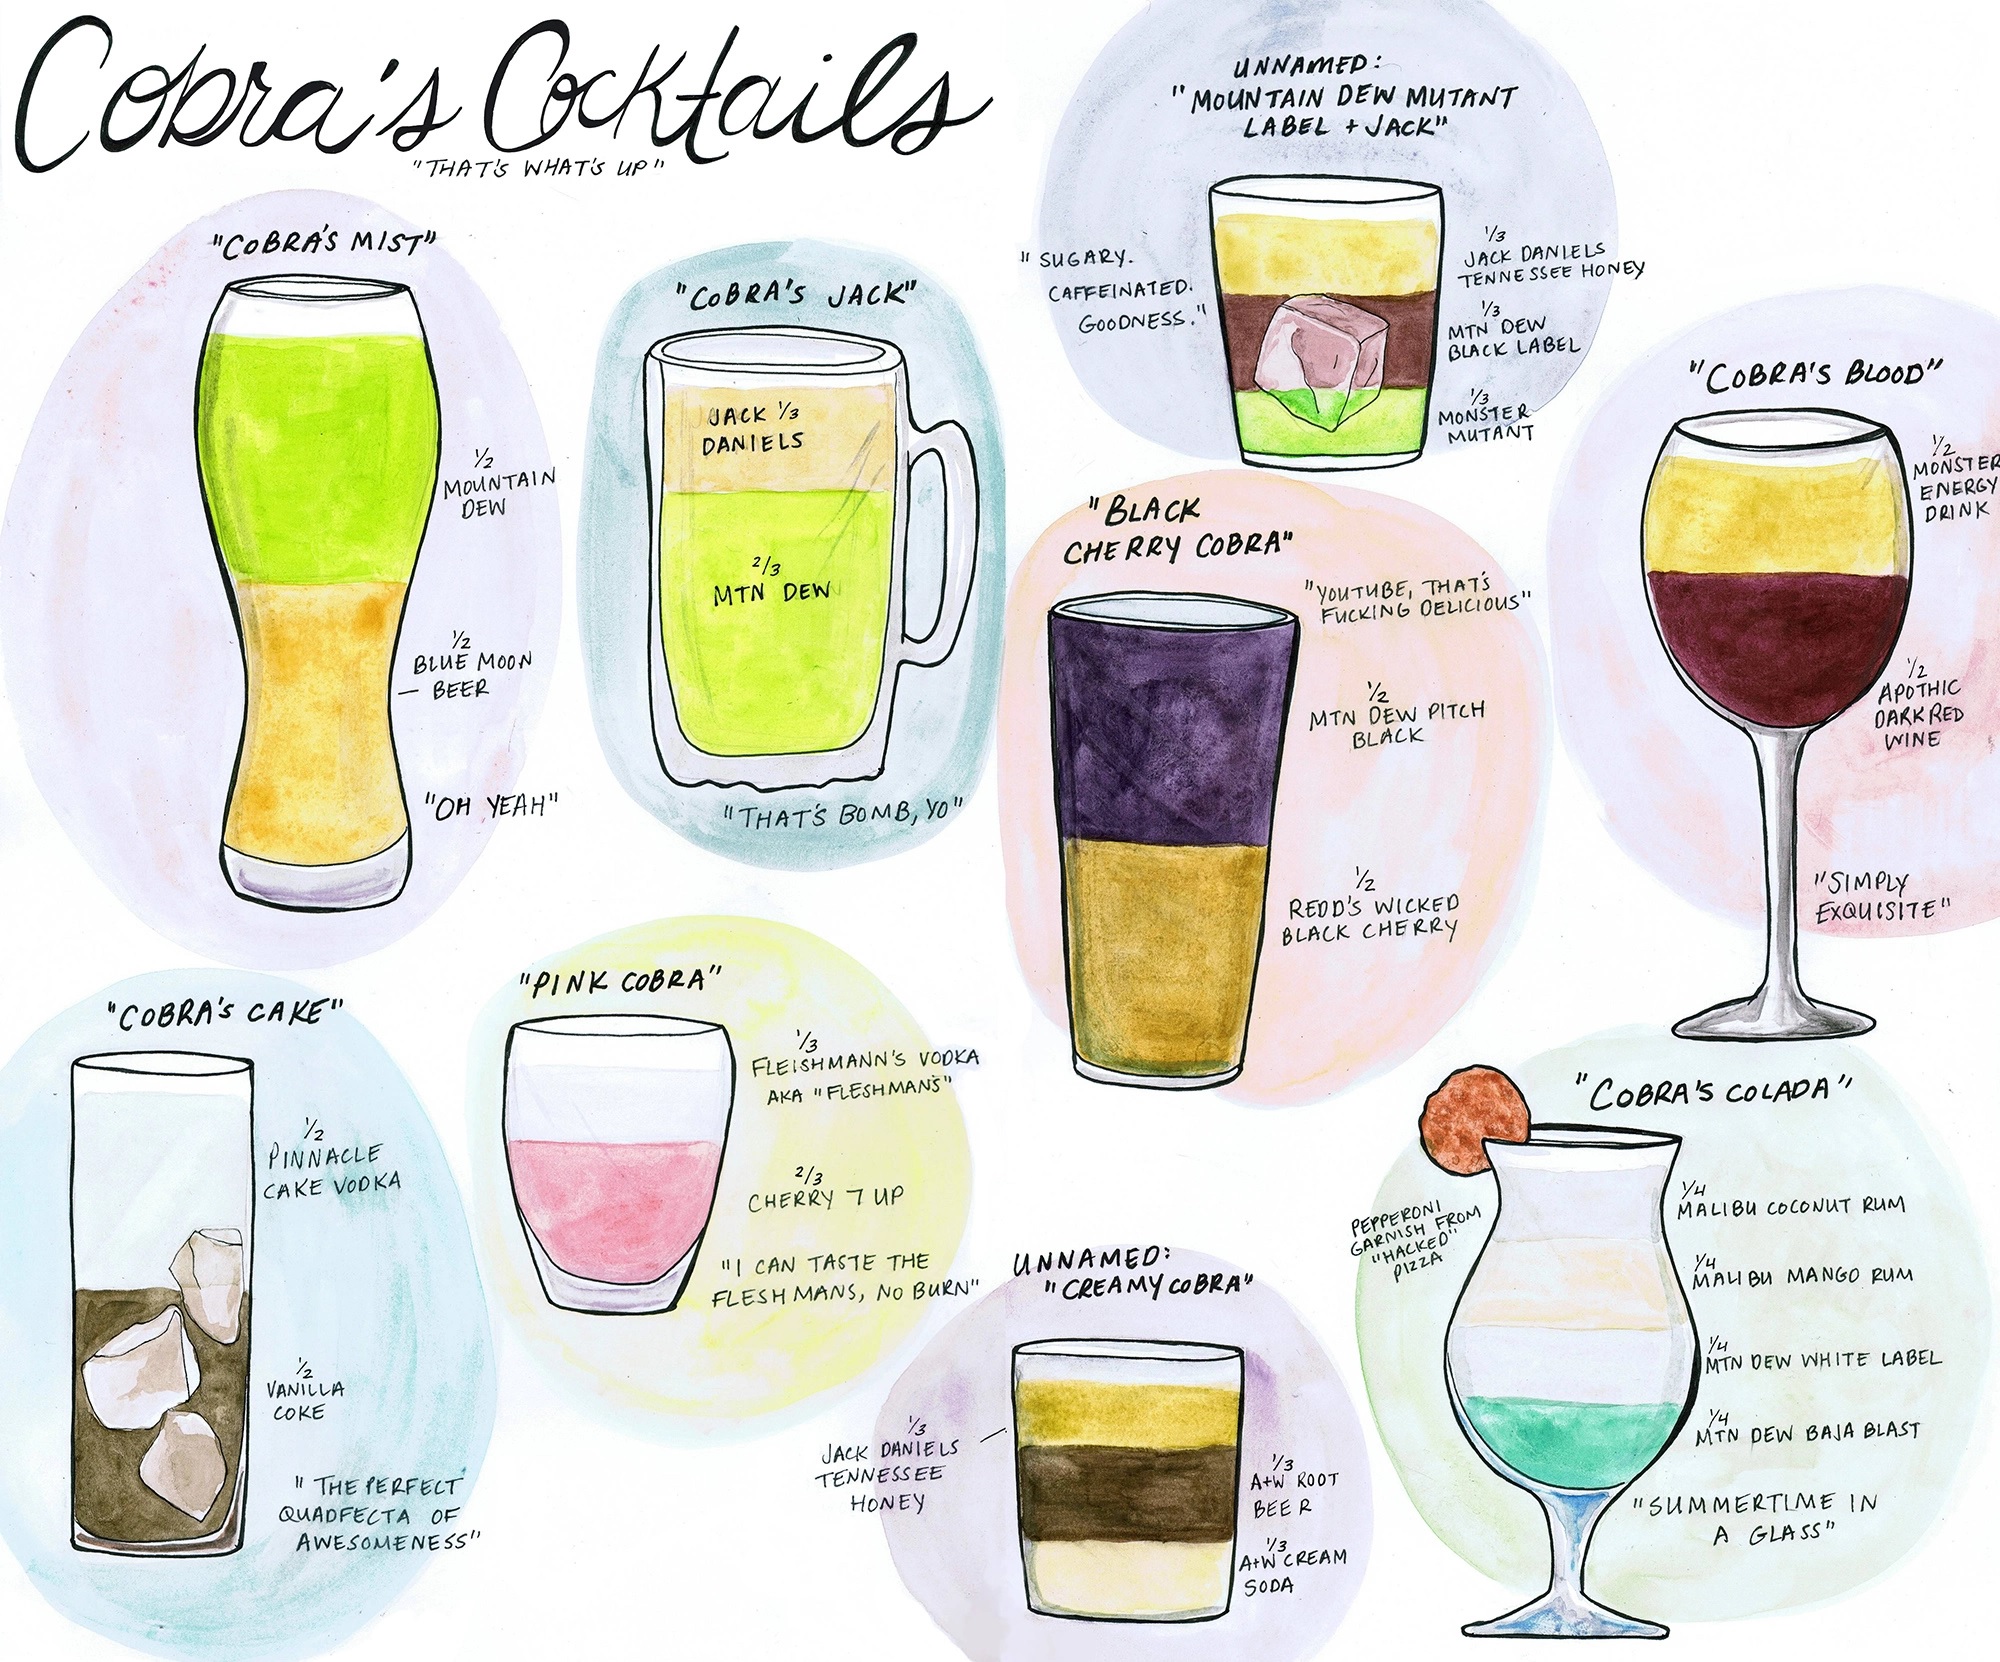 Cobra's Cocktails
"THAT'S WHAT'S UP"
"COBRA'S MIST"
1/2
MOUNTAIN
DEW
1/2
BLUE MOON
— BEER
"OH YEAH"
"COBRA'S JACK"
JACK 1/3
DANIELS
2/3
MTN DEW
"THAT'S BOMB, YO"
UNNAMED:
"MOUNTAIN DEW MUTANT
LABEL + JACK"
"SUGARY.
CAFFEINATED.
GOODNESS."
1/3
JACK DANIELS
TENNESSEE HONEY
1/3
MTN DEW
BLACK LABEL
1/3
MONSTER
MUTANT
"COBRA'S BLOOD"
1/2
MONSTER
ENERGY
DRINK
1/2
APOTHIC
DARK RED
WINE
"SIMPLY
EXQUISITE"
"BLACK
CHERRY COBRA"
"YOUTUBE, THAT'S
FUCKING DELICIOUS"
1/2
MTN DEW PITCH
BLACK
1/2
REDD'S WICKED
BLACK CHERRY
"COBRA'S CAKE"
1/2
PINNACLE
CAKE VODKA
1/2
VANILLA
COKE
"THE PERFECT
QUADFECTA OF
AWESOMENESS"
"PINK COBRA"
1/3
FLEISHMANN'S VODKA
AKA "FLESHMAN'S"
2/3
CHERRY 7 UP
"I CAN TASTE THE
FLESHMANS, NO BURN"
UNNAMED:
"CREAMY COBRA"
1/3
JACK DANIELS
TENNESSEE
HONEY
1/3
A+W ROOT
BEER
1/3
A+W CREAM
SODA
"COBRA'S COLADA"
PEPPERONI
GARNISH FROM
"HACKED"
PIZZA
1/4
MALIBU COCONUT RUM
1/4
MALIBU MANGO RUM
1/4
MTN DEW WHITE LABEL
1/4
MTN DEW BAJA BLAST
"SUMMERTIME IN
A GLASS"